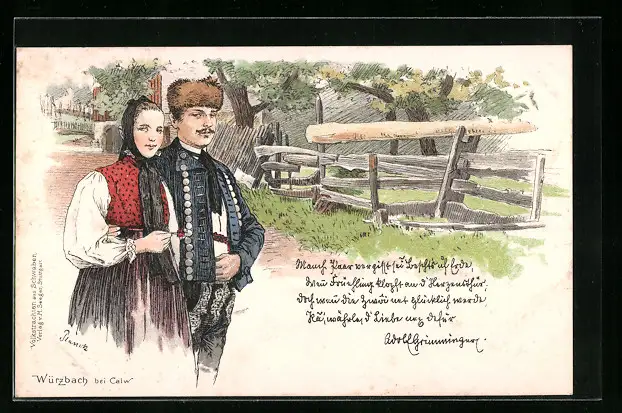 Manch Paar vergißt sei Beschts uf Erde,
Früehling klopft an d'Herzensthür.
Doch wenn die Zwoi net glücklich werde
währle, d'Liebe nex defür
Adolf Grimminger.
Volkstrachten aus Schwaben.
Verlag v. M. Seeger, Stuttgart.
Würzbach bei Calw